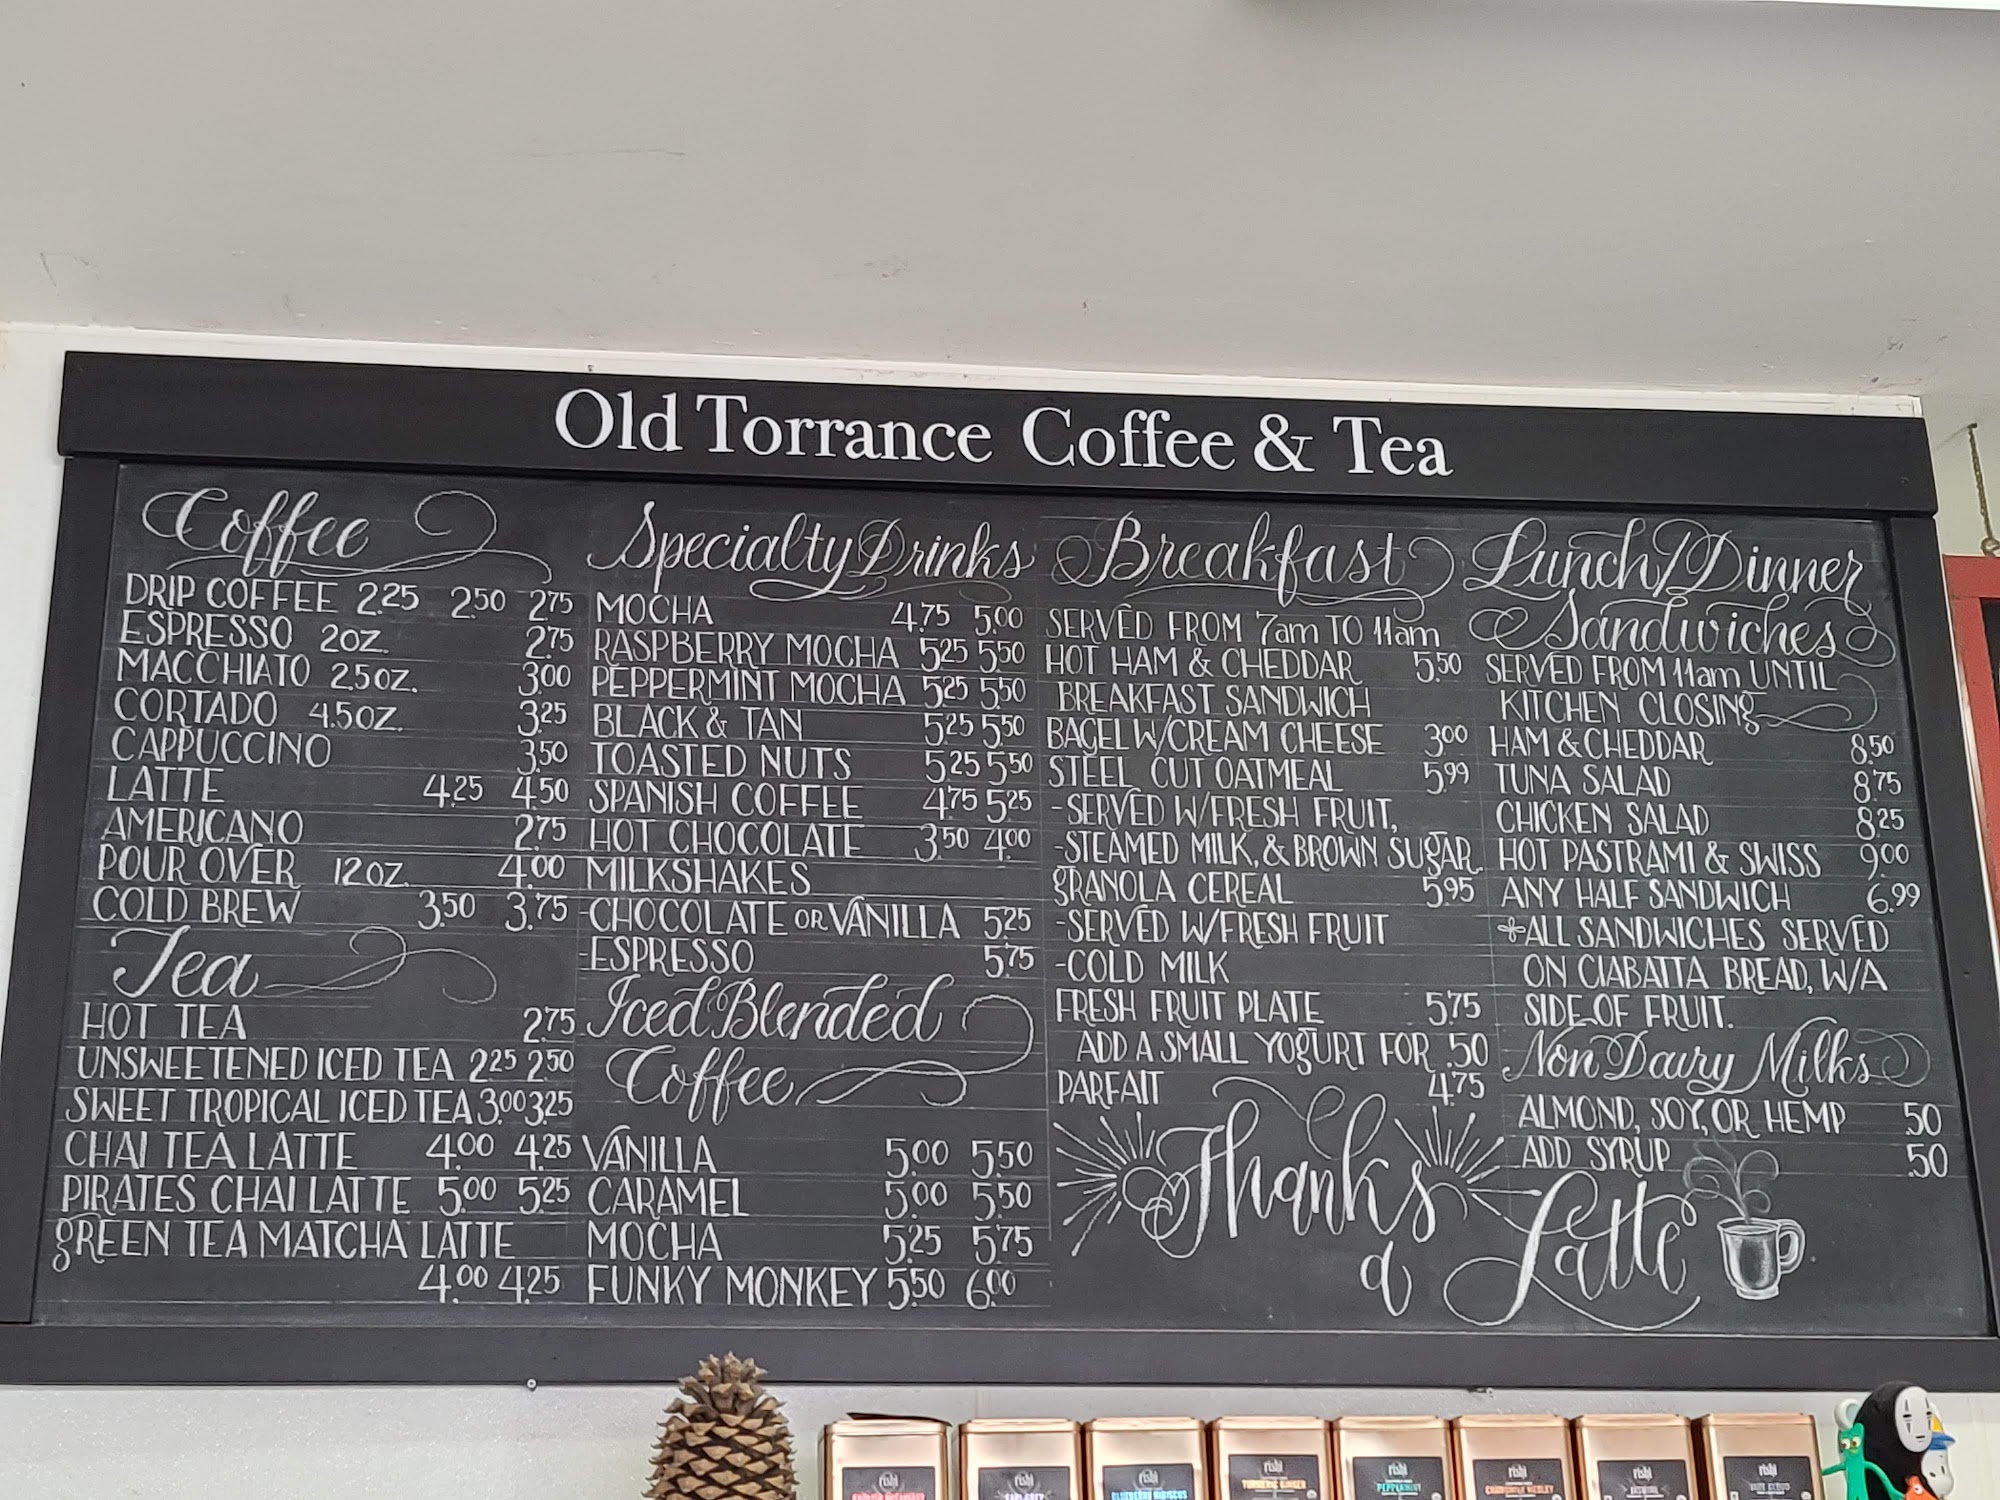 Old Torrance Coffee & Tea
Coffee
DRIP COFFEE 2.25 2.50 2.75
ESPRESSO 2OZ. 2.75
MACCHIATO 2.5OZ. 3.00
CORTADO 4.5OZ. 3.25
CAPPUCCINO 3.50
LATTE 4.25 4.50
AMERICANO 2.75
POUR OVER 12OZ. 4.00
COLD BREW 3.50 3.75
Tea
HOT TEA 2.75
UNSWEETENED ICED TEA 2.25 2.50
SWEET TROPICAL ICED TEA 3.00 3.25
CHAI TEA LATTE 4.00 4.25
PIRATES CHAI LATTE 5.00 5.25
GREEN TEA MATCHA LATTE
4.00 4.25
Specialty Drinks
MOCHA 4.75 5.00
RASPBERRY MOCHA 5.25 5.50
PEPPERMINT MOCHA 5.25 5.50
BLACK & TAN 5.25 5.50
TOASTED NUTS 5.25 5.50
SPANISH COFFEE 4.75 5.25
HOT CHOCOLATE 3.50 4.00
MILKSHAKES
-CHOCOLATE OR VANILLA 5.25
-ESPRESSO 5.75
Iced Blended
Coffee
VANILLA 5.00 5.50
CARAMEL 5.00 5.50
MOCHA 5.25 5.75
FUNKY MONKEY 5.50 6.00
Breakfast
SERVED FROM 7am TO 11am
HOT HAM & CHEDDAR 5.50
BREAKFAST SANDWICH
BAGEL W/CREAM CHEESE 3.00
STEEL CUT OATMEAL 5.99
-SERVED W/FRESH FRUIT,
-STEAMED MILK, & BROWN SUGAR.
GRANOLA CEREAL 5.95
-SERVED W/FRESH FRUIT
-COLD MILK
FRESH FRUIT PLATE 5.75
ADD A SMALL YOGURT FOR .50
PARFAIT 4.75
Lunch/Dinner
Sandwiches
SERVED FROM 11am UNTIL
KITCHEN CLOSING
HAM & CHEDDAR 8.50
TUNA SALAD 8.75
CHICKEN SALAD 8.25
HOT PASTRAMI & SWISS 9.00
ANY HALF SANDWICH 6.99
*ALL SANDWICHES SERVED
ON CIABATTA BREAD, W/A
SIDE OF FRUIT.
Non Dairy Milks
ALMOND, SOY, OR HEMP .50
ADD SYRUP .50
Thanks
a Latte
rishi
rishi
rishi
rishi
rishi
rishi
rishi
rishi
EARL GREY
BLUEBERRY HIBISCUS
TURMERIC GINGER
PEPPERMINT
CHAMOMILE MEDLEY